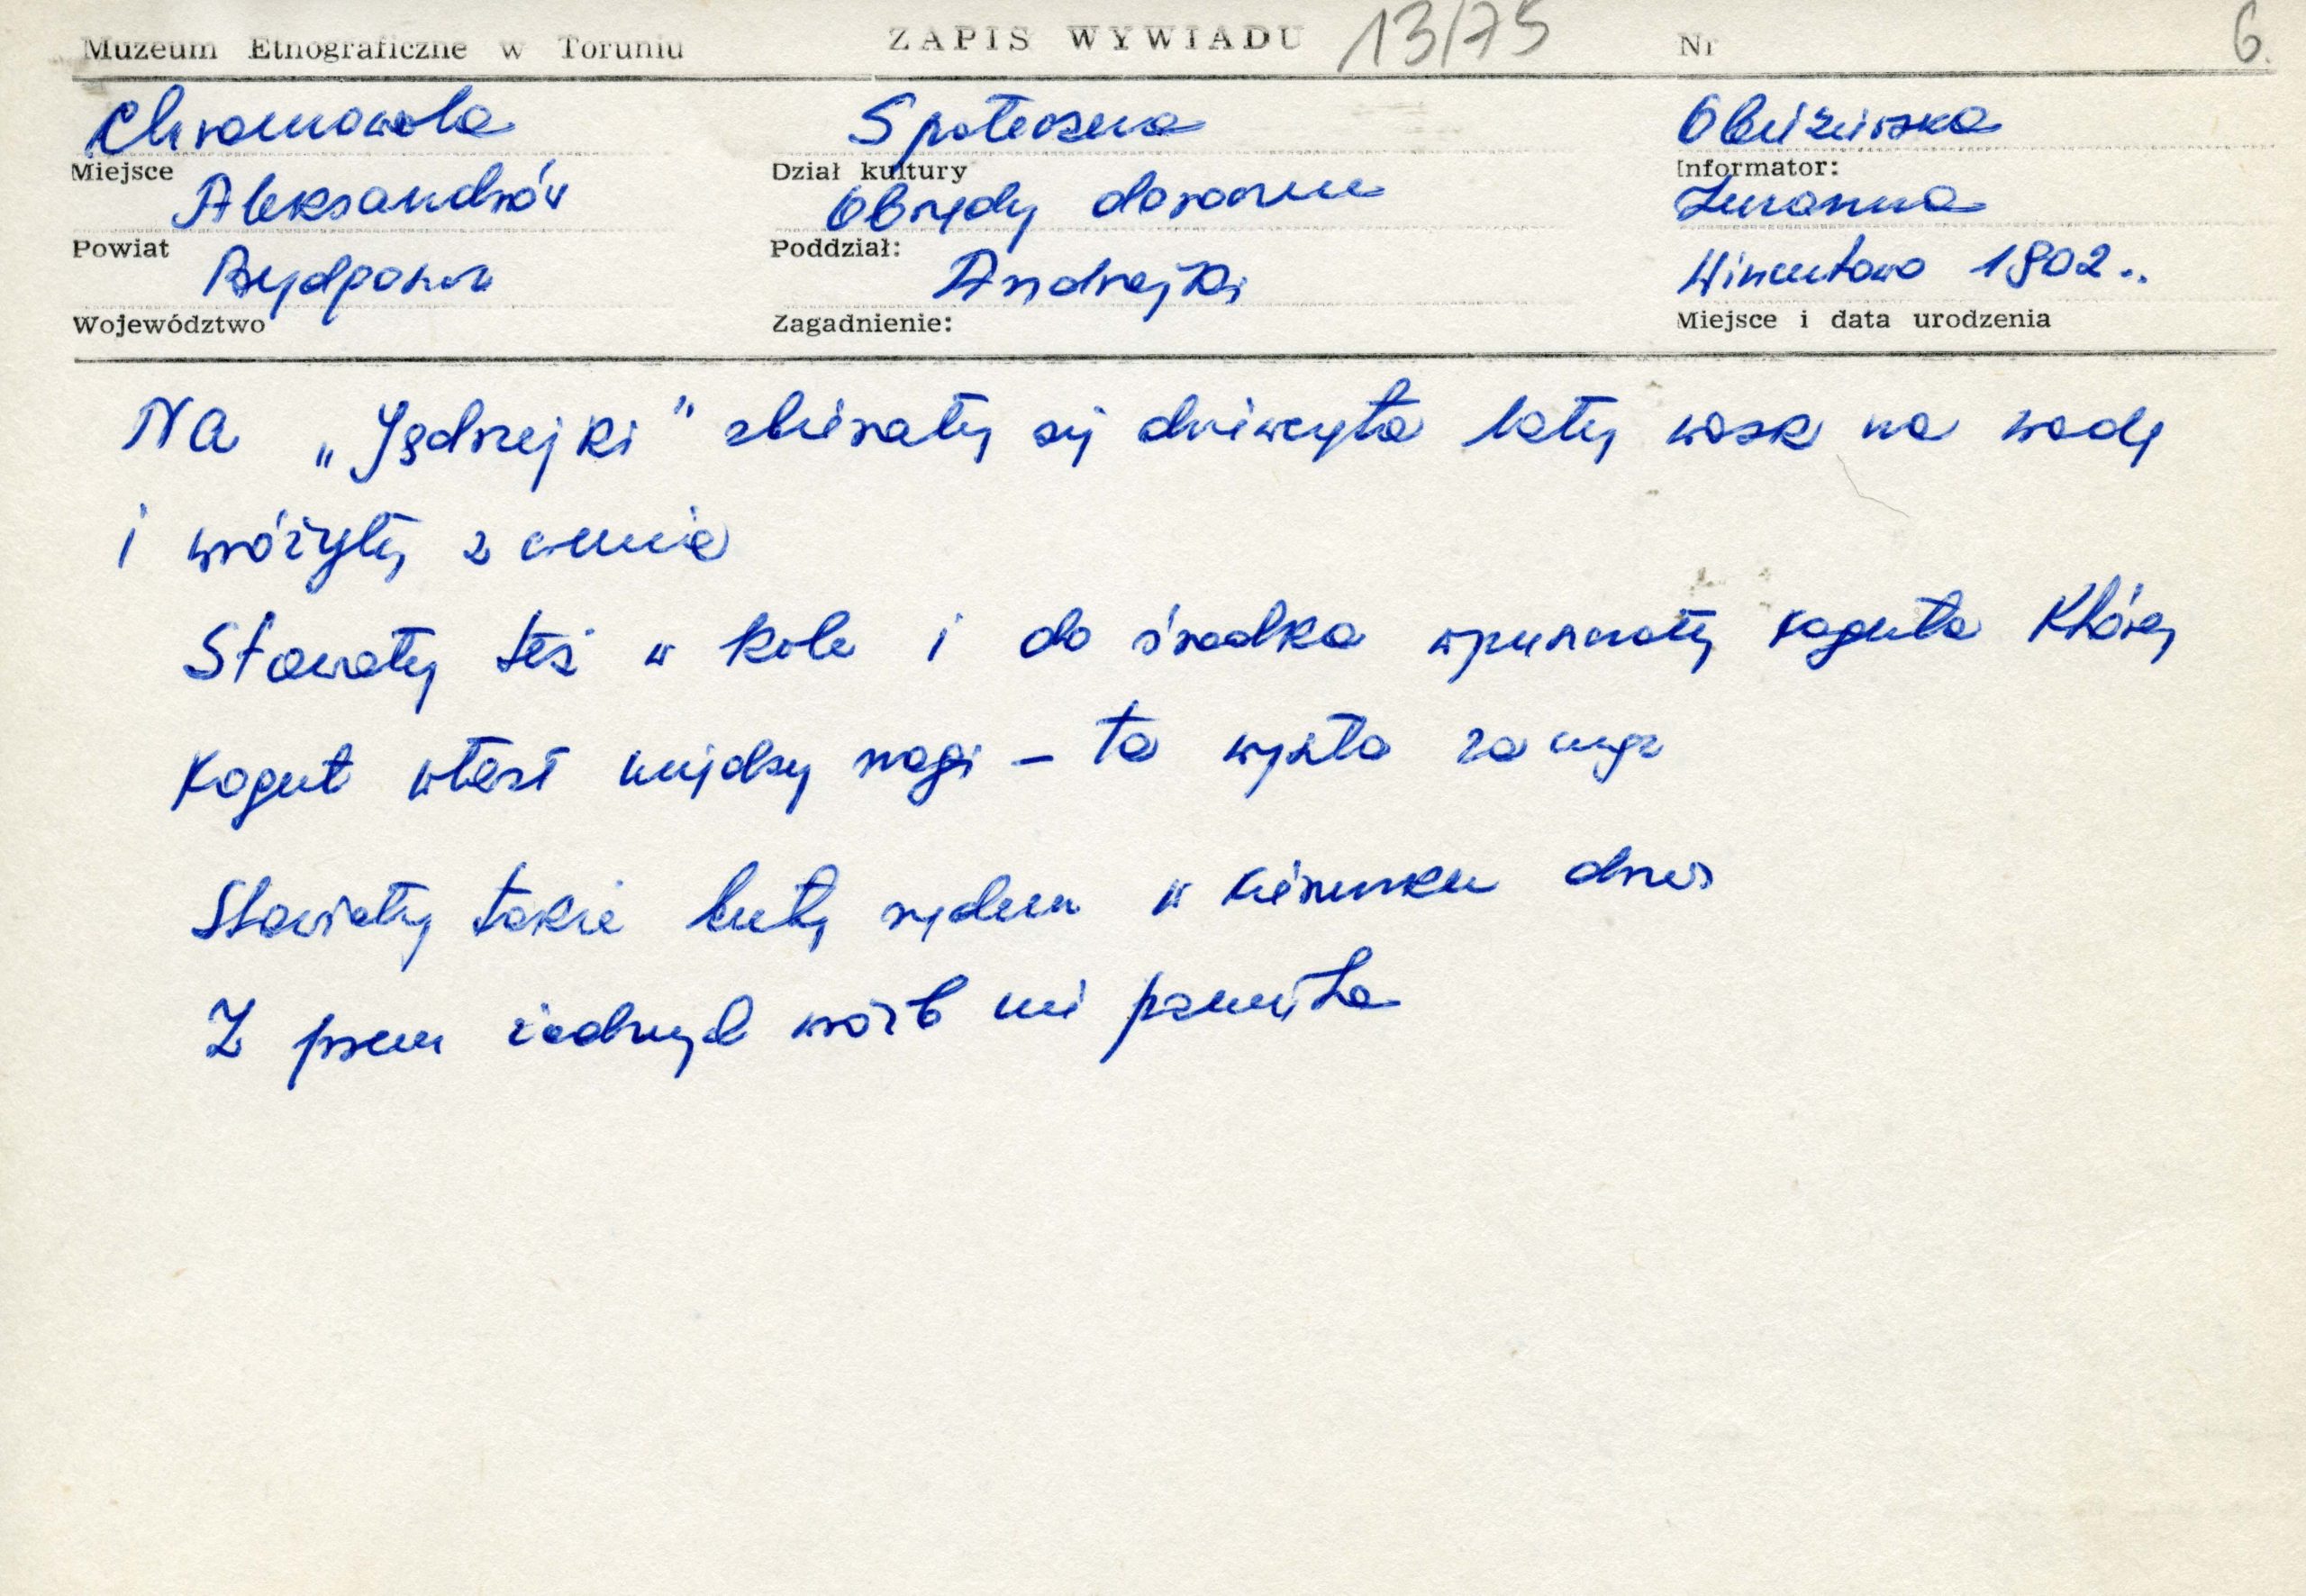 Muzeum Etnograficzne w Toruniu ZAPIS WYWIADU 13/75 Nr 6.
Chromowola Społeczna
Miejsce Dział kultury Informator:
Aleksandrów Obrzędy doroczne Zuzanna
Powiat Poddział:
Bydgoszcz Andrzejki Wincentowo 1902..
Województwo Zagadnienie: Miejsce i data urodzenia
Na „Jędrzejki" zbierały się dziewczęta lały wosk na wodę
i wróżyły z cienia
Stawały też w kole i do środka wpuszczały koguta której
kogut wlazł między nogi – ta wyszła za mąż
Stawiały także buty rzędem w kierunku drzwi
Z psem żadnych wróżb nie pamięta